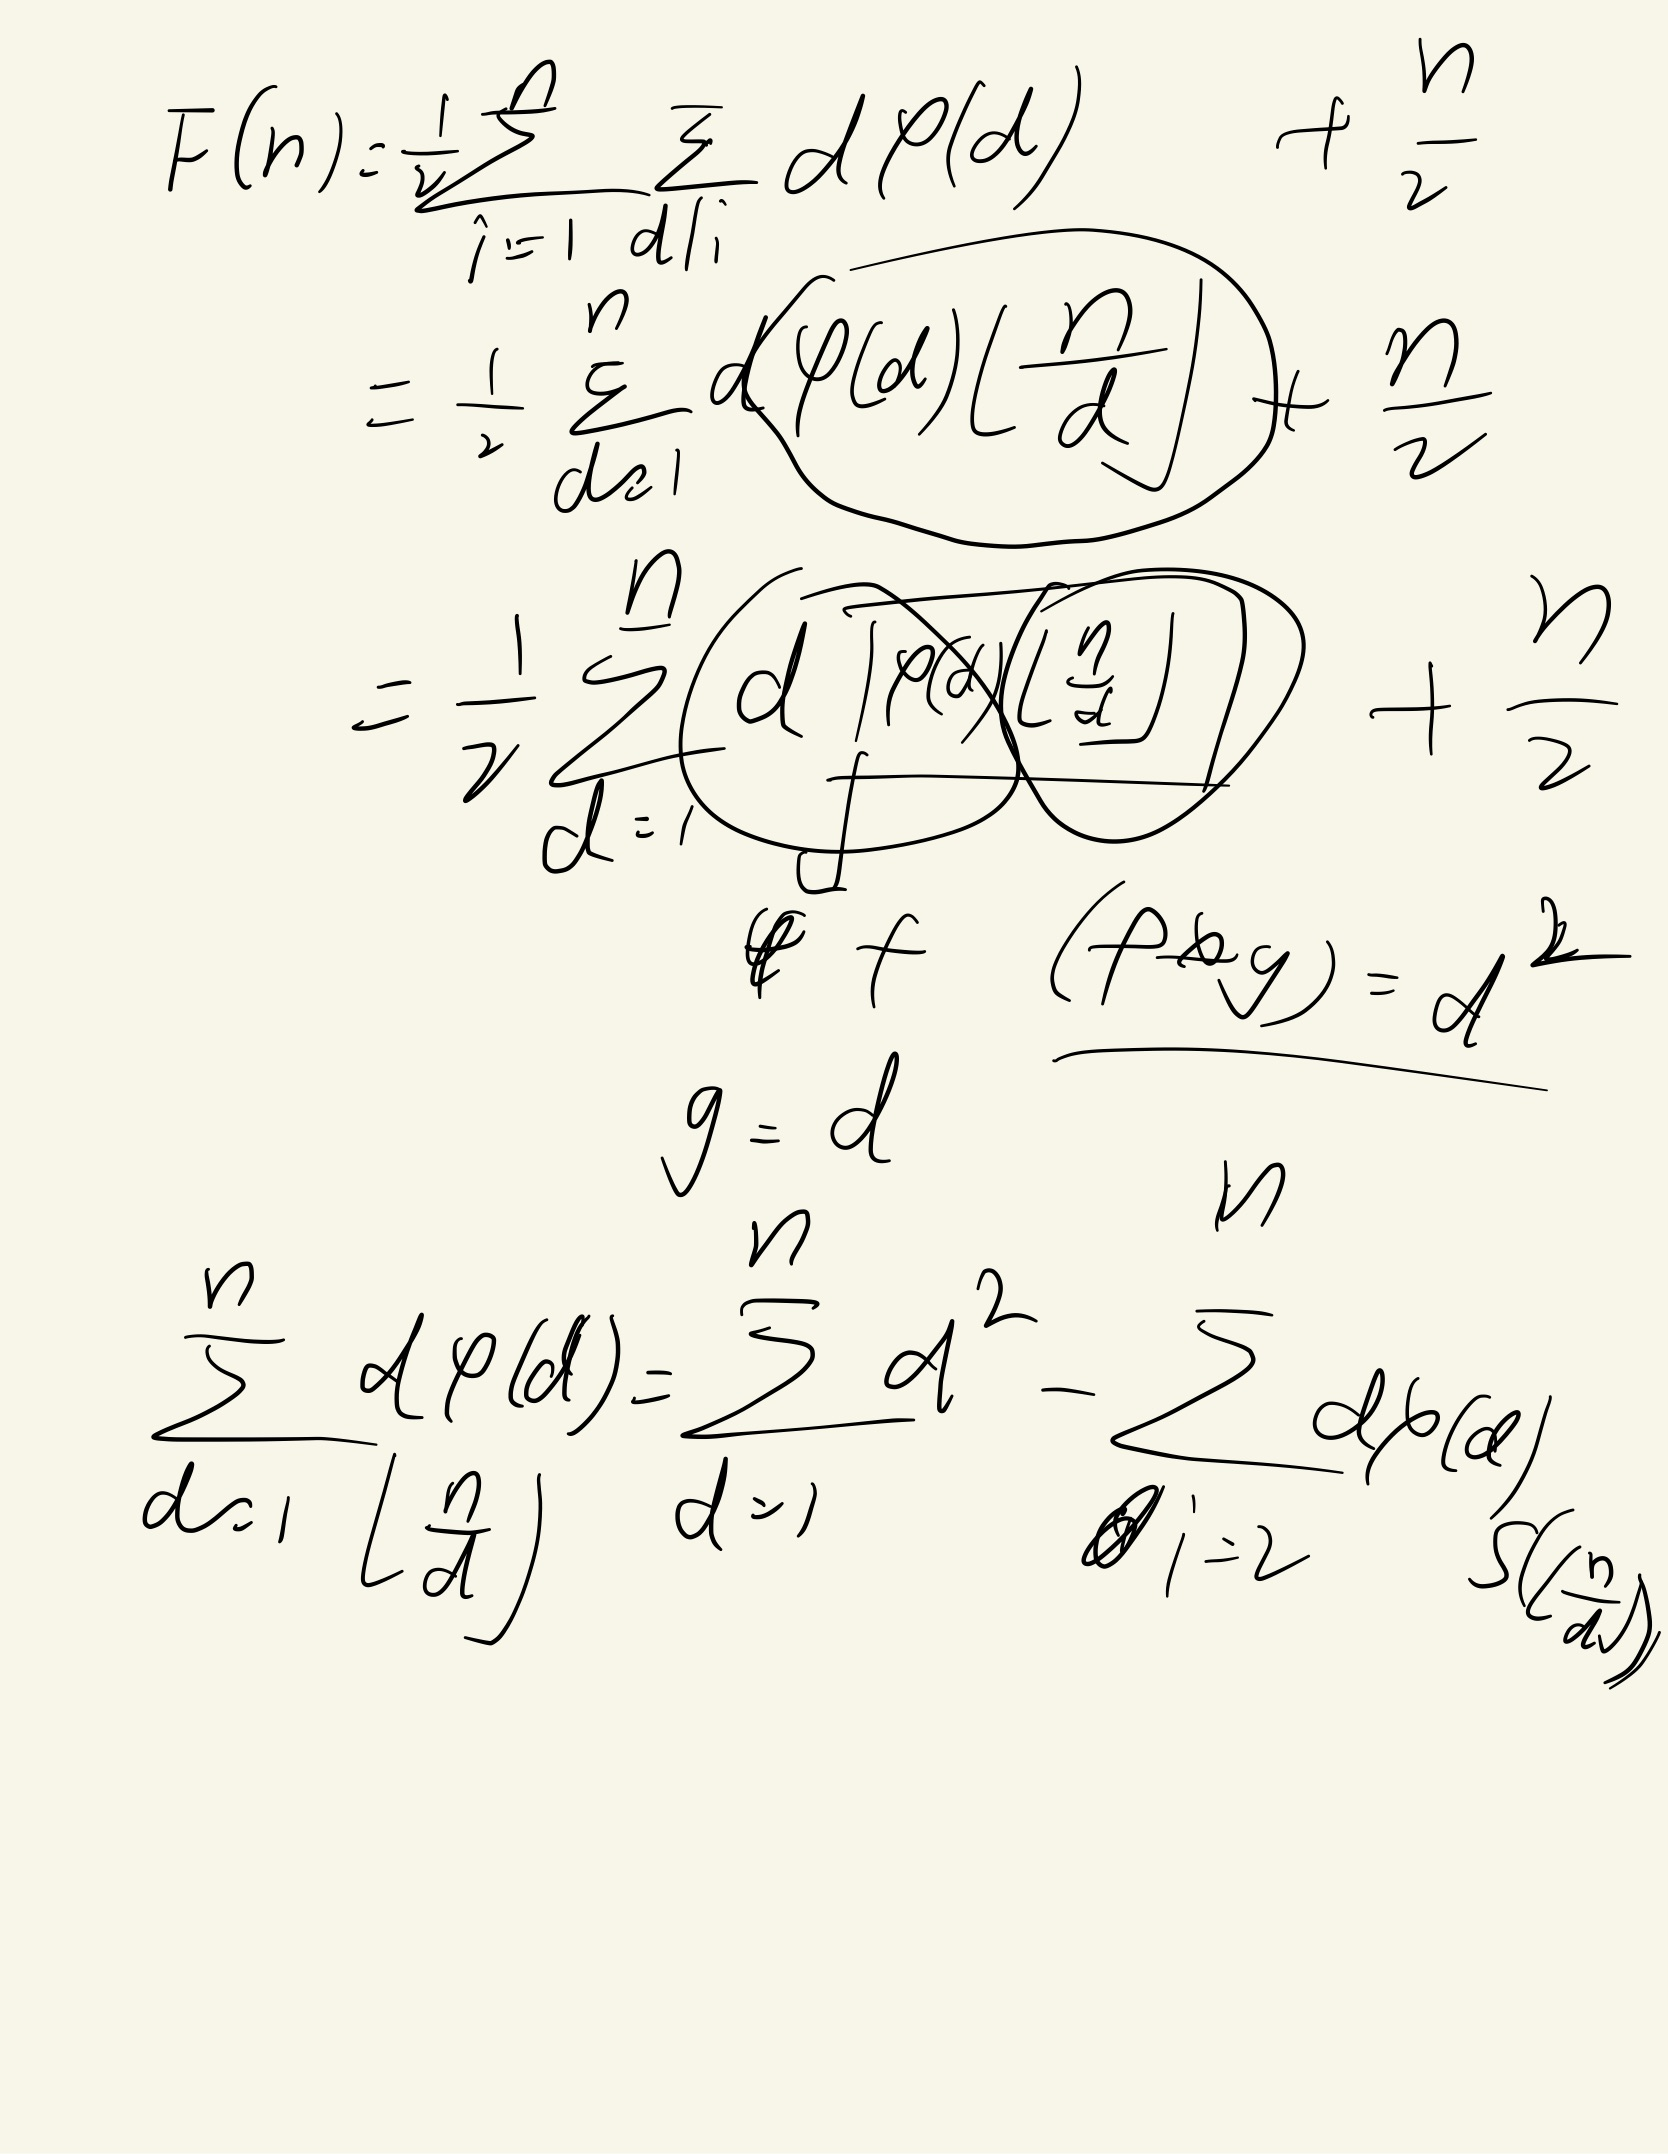 F(n) = 1/2 n∑i=1 ∑d|i d φ(d) + n/2
= 1/2 n∑d=1 d φ(d) ⌊n/d⌋ + n/2
= 1/2 n∑d=1 d φ(d) ⌊n/d⌋ + n/2
f (f*g) = d²
g = d
n∑d=1 d φ(d) = n∑d=1 d² - n∑i=2 d φ(d)
⌊n/d⌋ S(⌊n/d⌋)